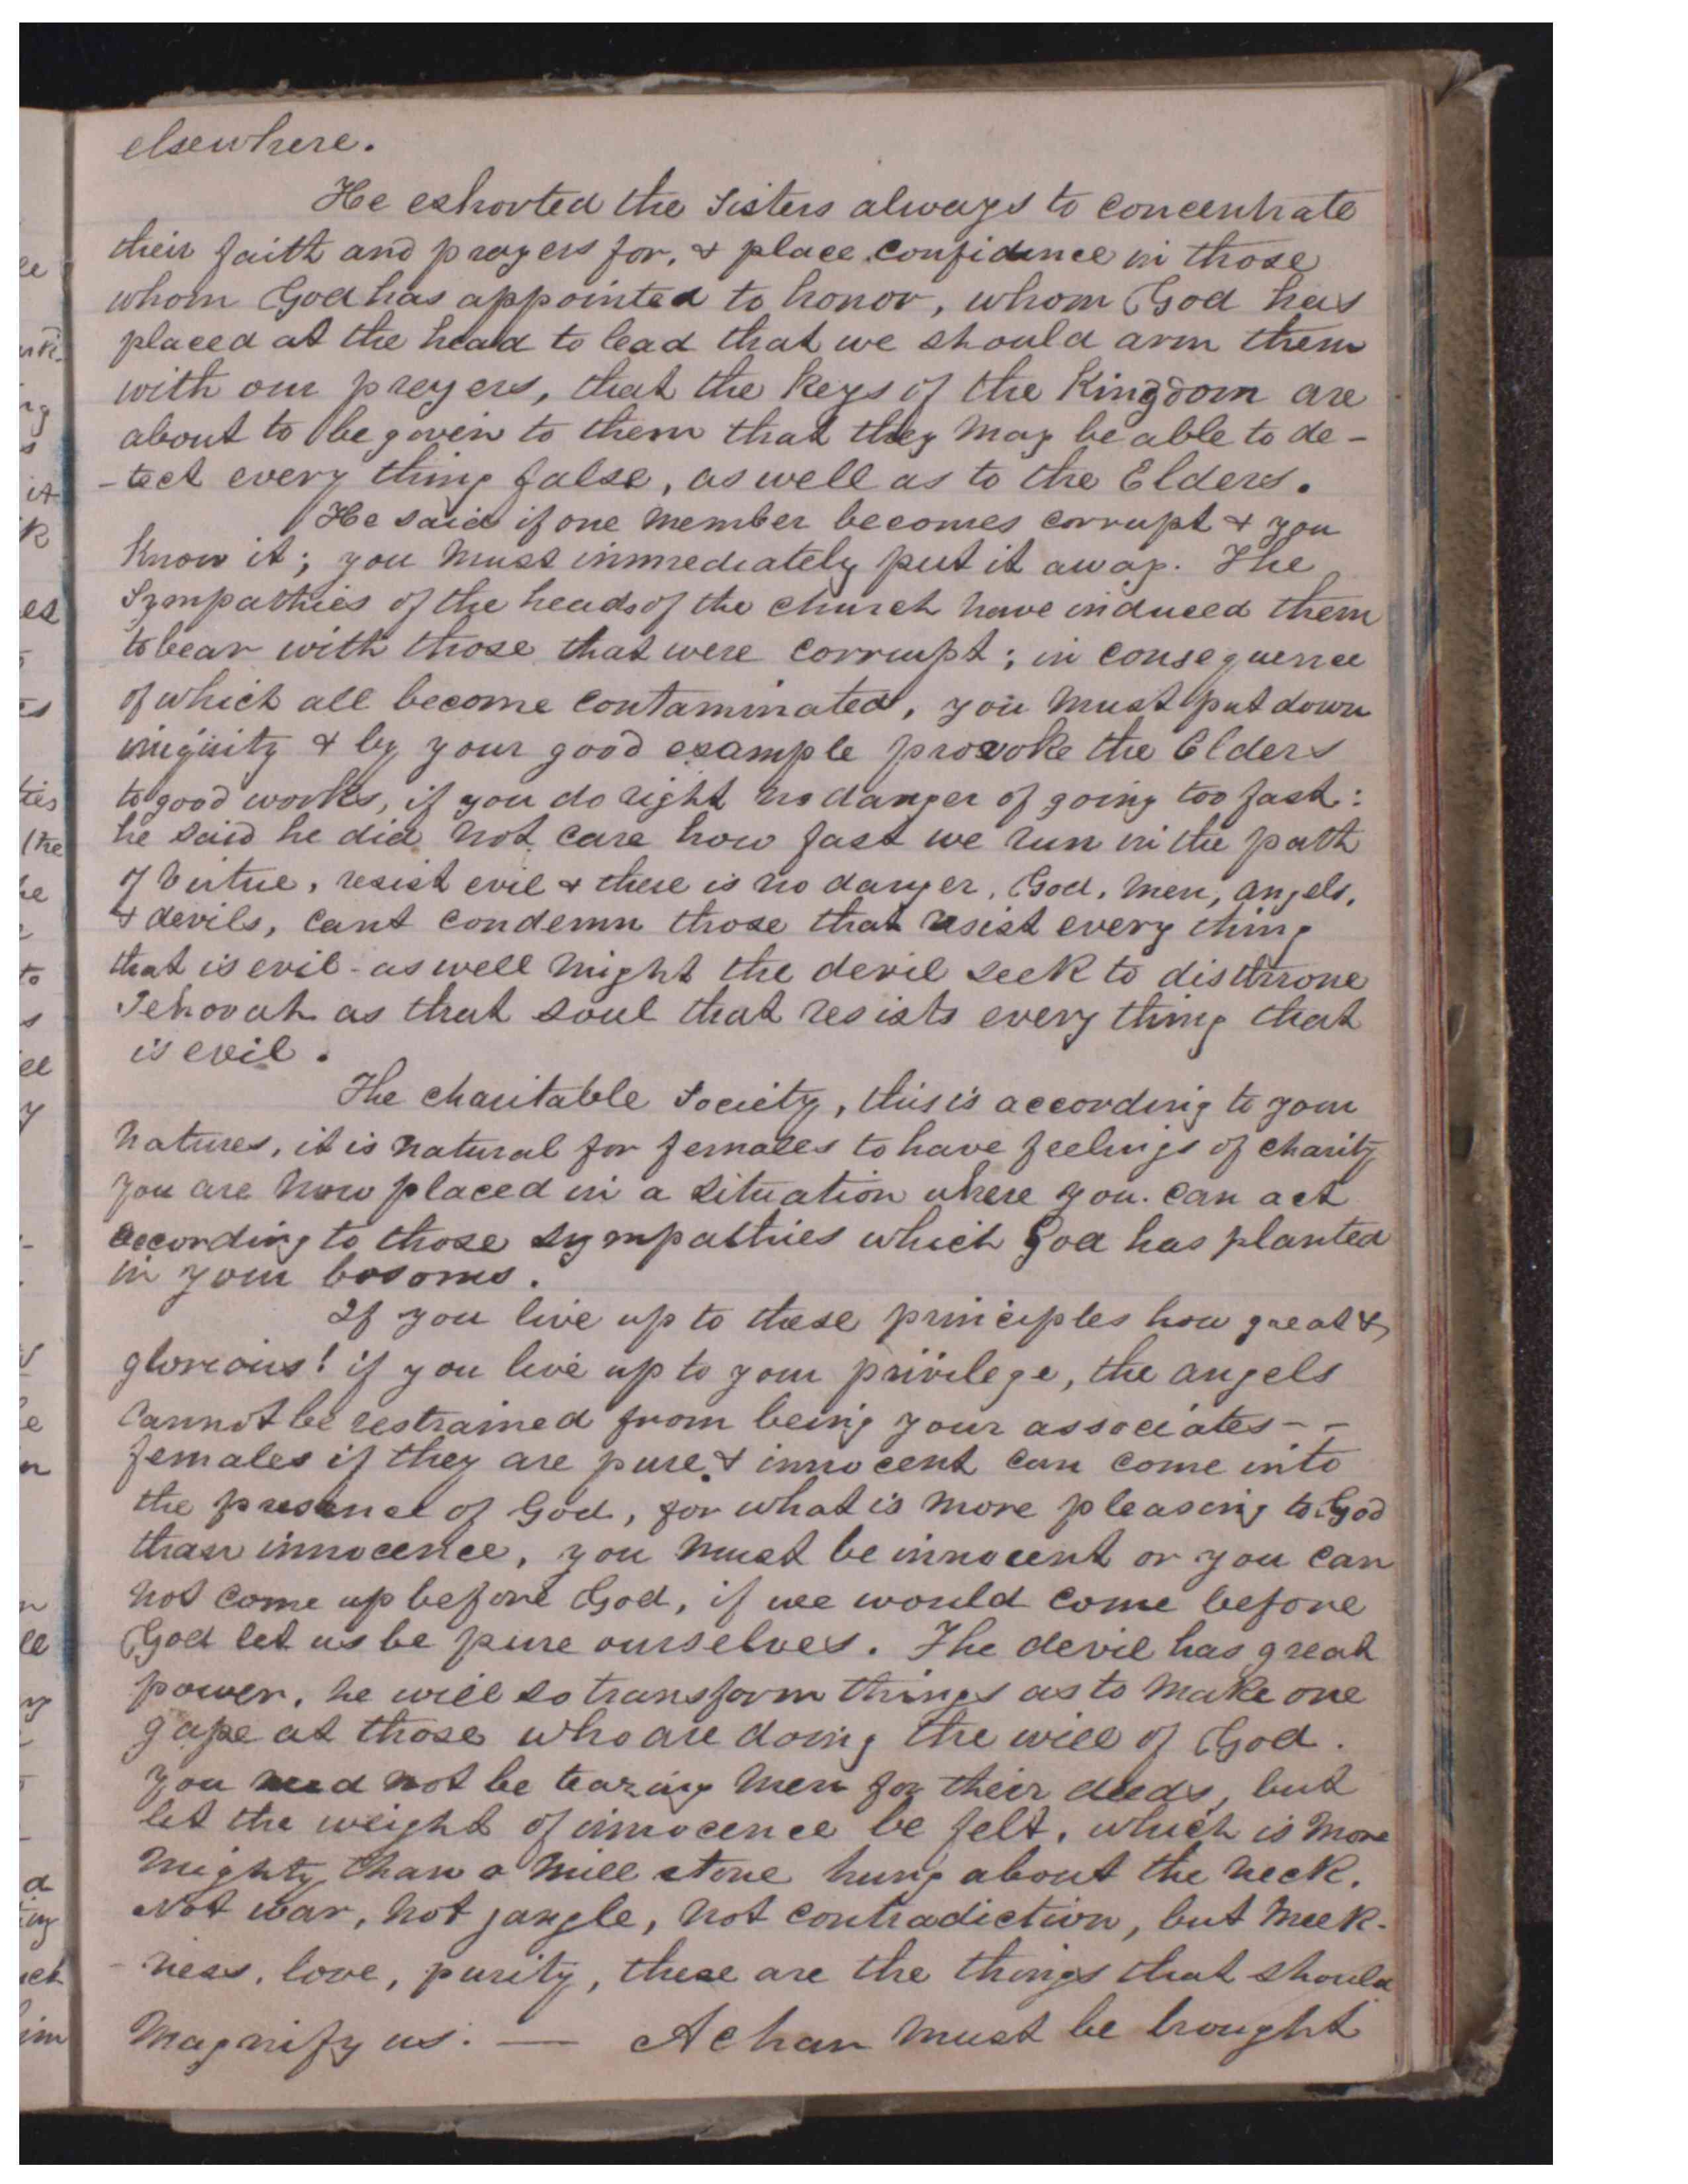 elsewhere.
He exhorted the Sisters always to concentrate
their faith and prayers for, & place confidence in those
whom God has appointed to honor, whom God has
placed at the head to lead that we should arm them
with our prayers, that the keys of the Kingdom are
about to be given to them that they may be able to de-
-tect every thing false, as well as to the Elders.
He said if one member becomes corrupt & you
Know it; you must immediately put it away. The
Sympathies of the heads of the church have induced them
to bear with those that were corrupt; in consequence
of which all become contaminated, you must put down
iniquity & by your good example provoke the Elders
to good works, if you do right no danger of going too fast:
he said he did not care how fast we run in the path
of Virtue, resist evil & there is no danger, God, men, angels,
& devils, cant condemn those that resist every thing
that is evil - as well might the devil seek to disthrone
Jehovah as that soul that resists every thing that
is evil.
The charitable Society, this is according to your
natures, it is natural for females to have feelings of charity
you are now placed in a situation where you can act
according to those sympathies which God has planted
in your bosoms.
If you live up to these principles how great &
glorious! if you live up to your privilege, the angels
cannot be restrained from being your associates - -
females if they are pure & innocent can come into
the presence of God, for what is more pleasing to God
than innocence, you must be innocent or you can
not come up before God, if we would come before
God let us be pure ourselves. The devil has great
power, he will so transform things as to make one
gape at those who are doing the will of God.
you need not be teazing men for their deeds, but
let the weight of innocence be felt, which is more
mighty than a mill stone hung about the neck.
Not war, not jangle, not contradiction, but meek-
-ness, love, purity, these are the things that should
magnify us. — Achan must be brought